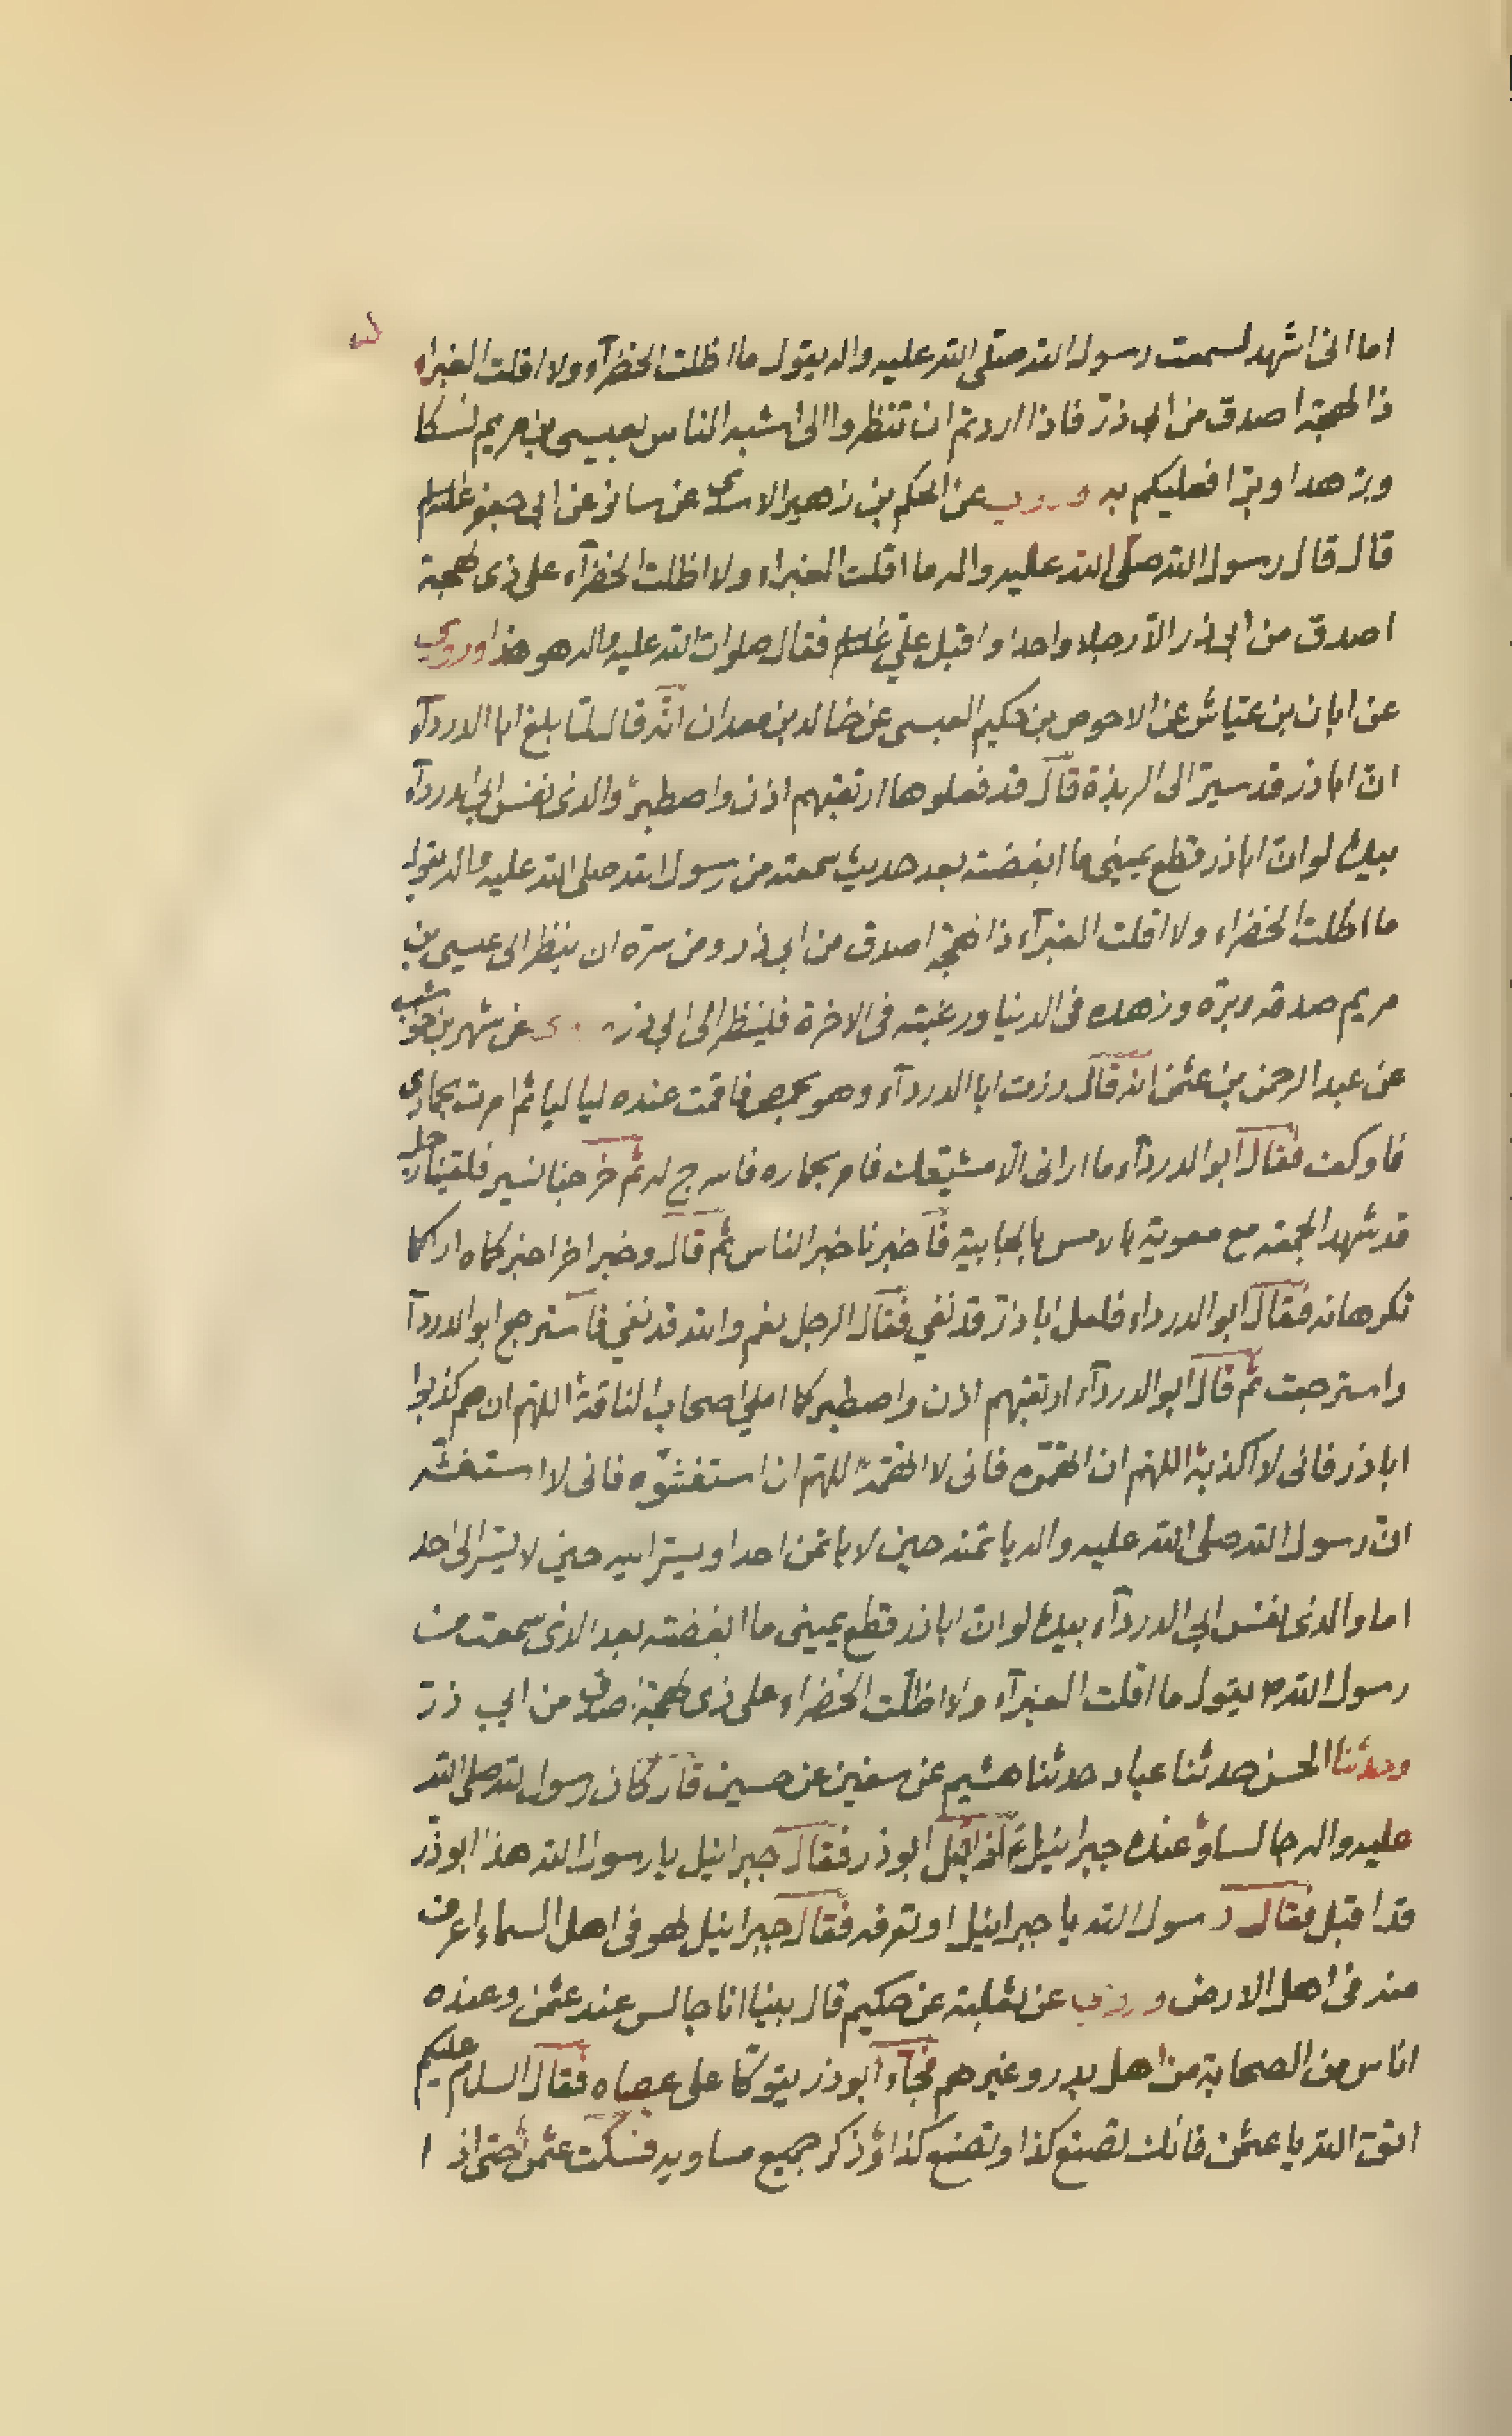 اما انى اشهد لسمعت رسول الله صلى الله عليه واله يقول ما اظلت الخضرآء ولا اقلت الغبراء
ذا لهجة اصدق من أبي ذرّ فاذا اردتم ان تنظروا الى اشبه الناس بعيسى بن مريم نسكا
وزهدا وبرّا فعليكم به وروى عن الحكم بن زهير الاسدى عن سانر عن ابى جعفر
قال قال رسول الله صلى الله عليه واله ما اقلت الغبراء ولا اظلت الخضرآء على ذى لهجة
اصدق من أبى ذر الّا رجلا واحدا واقبل علىّ فقال صلوات الله عليه واله هو هذا وروى
عن ابان بن عيّاش عن الاحوص بن حكيم العبسى عن خالد بن معدان انّه قال لمّا بلغ ابا الدردآء
انّ اباذر قد سيرّ الى الربذة قال قد فعلوها ارتقبهم اذن واصطبر والذى نفس ابى الدردآء
بيده لو انّ اباذر قطع يمينى ما ابغضته بعد حديث سمعته من رسول الله صلى الله عليه واله يقول
ما اظلت الخضراء ولا اقلت الغبرآء ذا لهجة اصدق من ابي ذر ومن سرّه ان ينظر الى عيسى بن
مريم صدقه وبرّه وزهده فى الدنيا ورغبته فى الاخرة فلينظر الى ابى ذر عن شهر بن حوشب
عن عبد الرحمن بن عثمن انه قال زرت ابا الدردآء وهو بحمص فاقمت عنده لياليا ثم امرت بحمارى
فاوكف فقال ابو الدردآء ما ارانى الّا مشيّعك فامر بحماره فاسرج له ثم خرجنا نسير فلقينا رجل
قد شهد الجمعة مع معوية بالامس بالجابية فاخبرنا خبر الناس ثم قال وخبر اخر اخبركماه اراكما
تكرهانه فقال ابو الدرداء فلعل اباذرّ قد نفي فقال الرجل نعم والله قد نفي فاسترجع ابو الدردآ
واسترجعت ثم قال ابو الدردآء ارتقبهم اذن واصطبر كما املى اصحاب الناقة اللهم ان هم كذبوا
اباذر فانى لا اكذبه اللهم ان اتهموه فانى لا اتهمه اللهم ان استغشّوه فانى لا استغشّه
انّ رسول الله صلى الله عليه واله ياتمنه حين لا ياتمن احدا ويسرّ اليه حين لا يسرّ الى احد
اما والذى نفس ابى الدردآء بيده لو انّ اباذر قطع يمينى ما ابغضته بعد الذى سمعت من
رسول الله ص يقول ما اقلت الغبرآء ولا اظلّت الخضراء على ذى لهجة اصدق من ابي ذرّ
وحدثنا الحسن حدثنا عباد حدثنا هشيم عن سفين عن حسين قال كان رسول الله صلى الله
عليه واله جالسا وعنده جبرائيل ع اذ اقبل ابوذر فقال جبرائيل يا رسول الله هذا ابوذّر
قد اقبل فقال رسول الله يا جبرائيل اوتعرفه فقال جبرائيل لهو فى اهل السماء اعرف
منه فى اهل الارض وروى عن ثعلبة عن حكيم قال بينا انا جالس عند عثمن وعنده
اناس من الصحابة من اهل بدر وغيرهم فجآء ابوذر يتوكّا على عصاه فقال السلام عليكم
اتق الله يا عثمن فانك تصنع كذا وتصنع كذا وذكر جميع مساويه فسكت عثمن حتى اذا